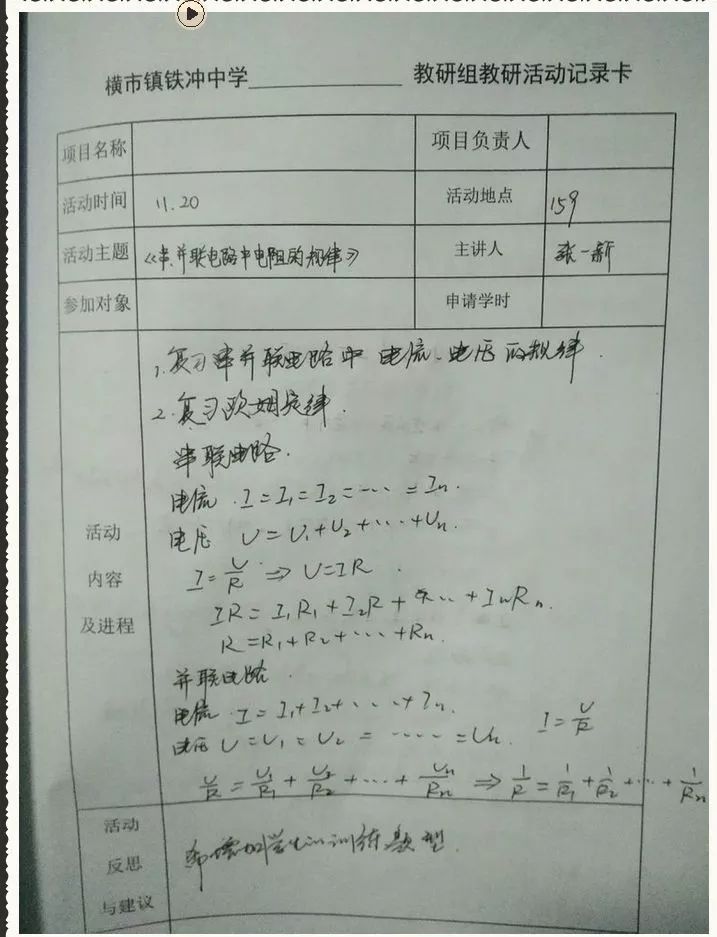 横市镇铁冲中学____________ 教研组教研活动记录卡
项目名称 项目负责人
活动时间 11.20 活动地点 159
活动主题 《串、并联电路中电阻的规律》 主讲人 张一新
参加对象 申请学时
1.复习串并联电路中 电流、电压的规律.
2.复习欧姆定律.
串联电路.
电流. I=I₁=I₂=……=Iₙ.
电压 U=U₁+U₂+……+Uₙ.
I=U/R ⇒ U=IR.
IR=I₁R₁+I₂R+……+IₙRₙ.
R=R₁+R₂+……+Rₙ.
并联电路.
电流. I=I₁+I₂+……+Iₙ. I=U/R
电压 U=U₁=U₂=……=Uₙ.
U/R=U₁/R₁+U₂/R₂+…+Uₙ/Rₙ ⇒ 1/R=1/R₁+1/R₂+…+1/Rₙ
活动
内容
及进程
活动
反思
与建议
增加学生的训练题型.